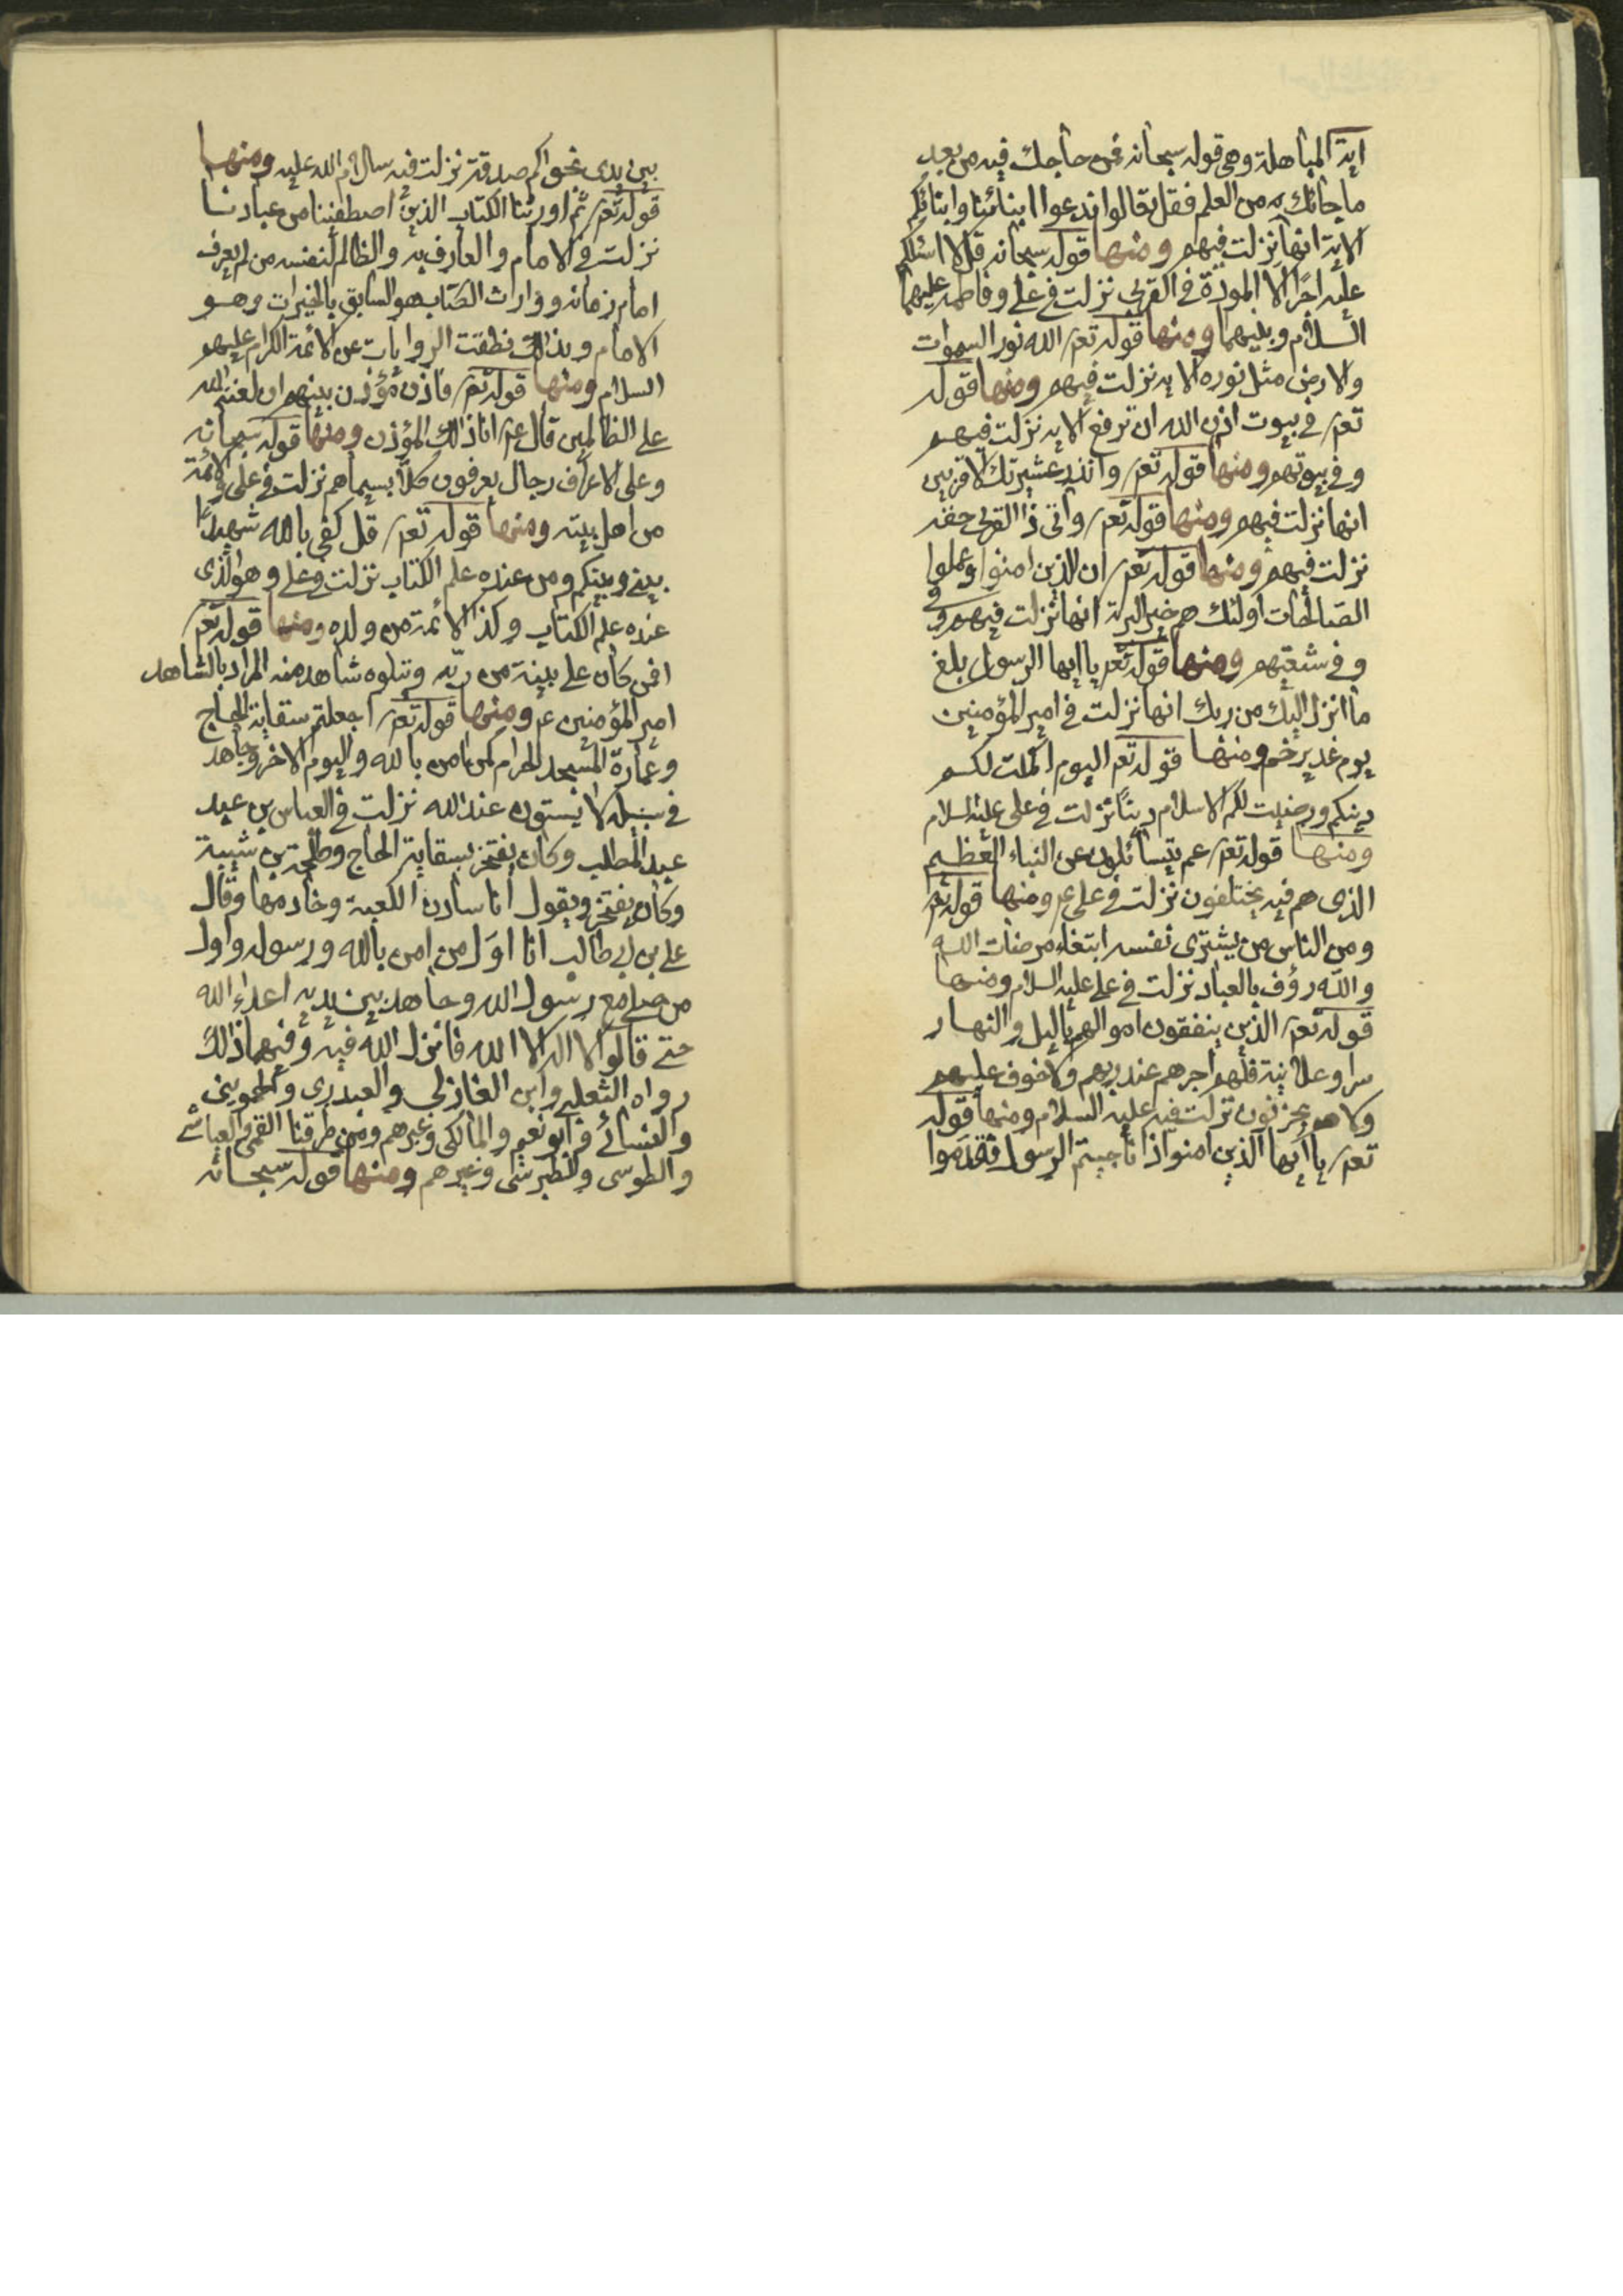 اية المباهلة وهى قوله سبحانه فمن حاجك فيه من بعد
ما جائك من العلم فقل تعالوا ندعوا ابنائنا وابنائكم
الاية انها نزلت فيهم ومنها قوله سبحانه قل لا اسئلكم
عليه اجرًا الا المودّة فى القربى نزلت فى على وفاطمه عليهما
السلام وبنيهما ومنها قوله تعم الله نور السموات
والارض مثل نوره الايه نزلت فيهم ومنها قوله
تعم فى بيوت اذن الله ان ترفع الايه نزلت فيهم
وفى بيوتهم ومنها قوله تعم وانذر عشيرتك الاقربين
انها نزلت فيهم ومنها قوله تعم واتى ذا القربى حقه
نزلت فيهم ومنها قوله تعم ان الذين امنوا وعملوا
الصالحات اولئك هم خير البرية انها نزلت فيهم
وفى شيعتهم ومنها قوله تعم يا ايها الرسول بلغ
ما انزل اليك من ربك انها نزلت فى امير المؤمنين
يوم غدير خم ومنها قوله تعم اليوم اكملت لكم
دينكم ورضيت لكم الاسلام دينًا نزلت فى على عليه السلام
ومنها قوله تعم عم يتسائلون عن النباء العظيم
الذى هم فيه يختلفون نزلت فى على ع ومنها قوله تعم
ومن الناس من يشترى نفسه ابتغاء مرضات الله
والله رؤف بالعباد نزلت فى على عليه السلام ومنها
قوله تعم الذين ينفقون اموالهم باليل والنهار
سرا وعلانية فلهم اجرهم عند ربهم ولاخوف عليهم
ولاهم يحزنون نزلت فيه عليه السلام ومنها قوله
تعم يا ايها الذين امنوا اذا ناجيتم الرسول فقدموا
بين يدى نجواكم صدقة نزلت فيه سلام الله عليه ومنها
قوله تعم ثم اورثنا الكتاب الذين اصطفينا من عبادنا
نزلت فى الامام والعارف به والظالم لنفسه من لم يعرف
امام زمانه ووارث الكتاب هو السابق بالخيرات وهو
الامام وبذلك نطقت الروايات عن الائمة الكرام عليهم
السلام ومنها قوله تعم فاذن مؤذن بينهم ان لعنة الله
على الظالمين قال ع انا ذلك المؤذن ومنها قوله سبحانه
وعلى الاعراف رجال يعرفون كلا بسيماهم نزلت فى على والائمة
من اهل بيته ومنها قوله تعم قل كفى بالله شهيدًا
بينى وبينكم ومن عنده علم الكتاب نزلت فى على وهو الذى
عنده علم الكتاب وكذا الائمة من ولده ومنها قوله تعم
افمن كان على بينة من ربّه ويتلوه شاهد منه المراد بالشاهد
امير المؤمنين ع ومنها قوله تعم اجعلتم سقاية الحاج
وعمارة المسجد الحرام كمن امن بالله واليوم الاخر وجاهد
فى سبيله لا يستون عند الله نزلت فى العباس بن عبد
عبد المطلب وكان يفتخر بسقاية الحاج وطلحة بن شيبة
وكان يفتخر ويقول انا سادن الكعبة وخادمها وقال
على بن ابى طالب انا اوّل من امن بالله ورسوله واول
من صلى مع رسول الله وجاهد بين يديه اعداء الله
حتى قالوا لا اله الا الله فانزل الله فيه وفيهما ذلك
رواه الثعلبى وابن المغازلى والعبدرى والحموينى
والنسائى وابو نعيم والمالكى وغيرهم ومن طرقنا القمى والعياشى
والطوسى والطبرسى وغيرهم ومنها قوله سبحانه